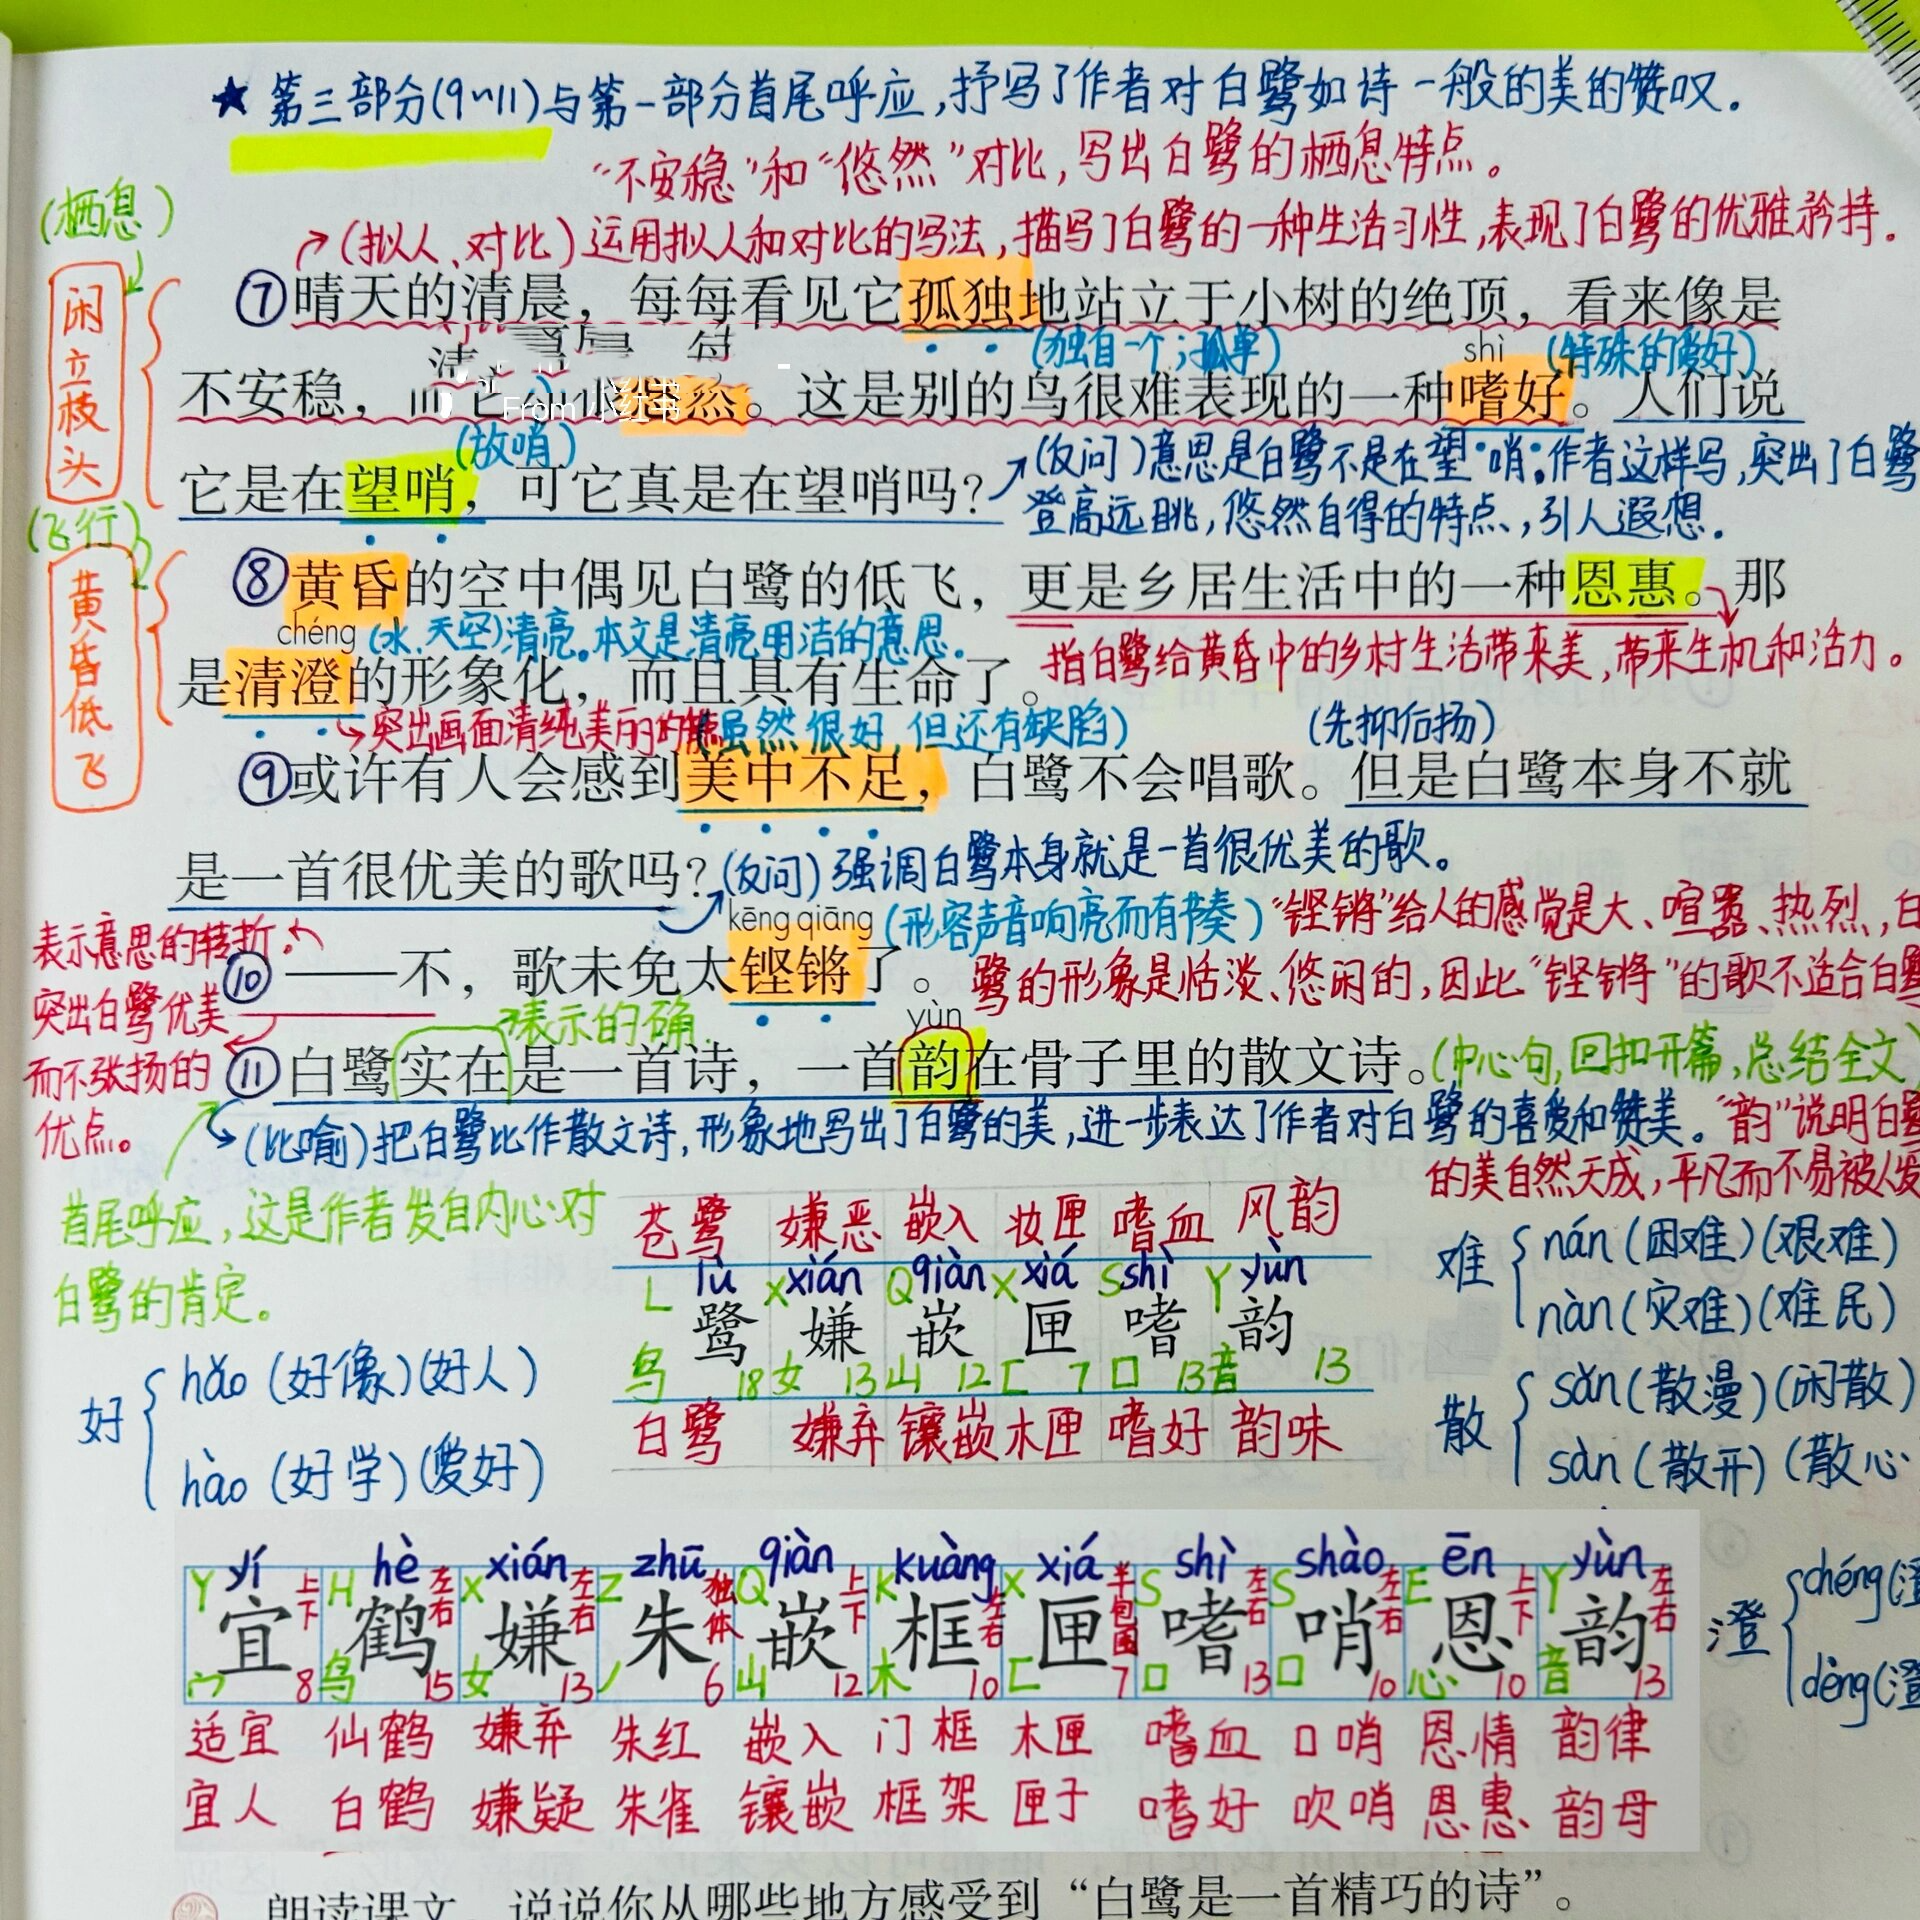 ★ 第三部分(9~11)与第一部分首尾呼应,抒写了作者对白鹭如诗一般的美的赞叹.
"不安稳"和"悠然"对比,写出白鹭的栖息特点。
(栖息)
(拟人、对比)运用拟人和对比的写法,描写了白鹭的一种生活习性,表现了白鹭的优雅矜持.
闲立枝头
⑦晴天的清晨，每每看见它孤独地站立于小树的绝顶，看来像是
(独自一个;孤单)
shì
(特殊的爱好)
不安稳，而它 悠然。这是别的鸟很难表现的一种嗜好。人们说
From 小红书
(放哨)
它是在望哨，可它真是在望哨吗？
(反问)意思是白鹭不是在望哨。作者这样写,突出了白鹭
登高远眺,悠然自得的特点,引人遐想.
(飞行)
黄昏低飞
⑧黄昏的空中偶见白鹭的低飞，更是乡居生活中的一种恩惠。那
chéng
(水、天空)清亮。本文是清亮明洁的意思.
是清澄的形象化，而且具有生命了。
指白鹭给黄昏中的乡村生活带来美,带来生机和活力。
突出画面清纯美丽的特点
(虽然很好,但还有缺陷)
(先抑后扬)
⑨或许有人会感到美中不足，白鹭不会唱歌。但是白鹭本身不就
是一首很优美的歌吗？
(反问)强调白鹭本身就是一首很优美的歌。
kēng qiāng
(形容声音响亮而有节奏)
"铿锵"给人的感觉是大、喧嚣、热烈,白
鹭的形象是恬淡、悠闲的,因此"铿锵"的歌不适合白鹭
表示意思的转折。
突出白鹭优美
而不张扬的
优点。
⑩——不，歌未免太铿锵了。
表示的确.
yùn
⑪白鹭实在是一首诗，一首韵在骨子里的散文诗。
(中心句,回扣开篇,总结全文)
(比喻)把白鹭比作散文诗,形象地写出了白鹭的美,进一步表达了作者对白鹭的喜爱和赞美。
"韵"说明白鹭
的美自然天成,平凡而不易被人发
首尾呼应,这是作者发自内心对
白鹭的肯定。
苍鹭 嫌恶 嵌入 妆匣 嗜血 风韵
L lù X xián Q qiàn X xiá S shì Y yùn
鹭 嫌 嵌 匣 嗜 韵
鸟 18 女 13 山 12 匚 7 口 13 音 13
白鹭 嫌弃 镶嵌 木匣 嗜好 韵味
难 nán(困难)(艰难)
nàn(灾难)(难民)
好 hǎo(好像)(好人)
hào(好学)(爱好)
散 sǎn(散漫)(闲散)
sàn(散开)(散心
yí hè xián zhū qiàn kuàng xiá shì shào ēn yùn
Y 上下 H 左右 X 左右 Z 独体 Q 上下 K 左右 X 半包围 S 左右 S 左右 E 上下 Y 左右
宜 鹤 嫌 朱 嵌 框 匣 嗜 哨 恩 韵
宀 8 鸟 15 女 13 丿 6 山 12 木 10 匚 7 口 13 口 10 心 10 音 13
适宜 仙鹤 嫌弃 朱红 嵌入 门框 木匣 嗜血 口哨 恩情 韵律
宜人 白鹤 嫌疑 朱雀 镶嵌 框架 匣子 嗜好 吹哨 恩惠 韵母
澄 chéng(澄
dèng(澄
朗读课文，说说你从哪些地方感受到“白鹭是一首精巧的诗”。